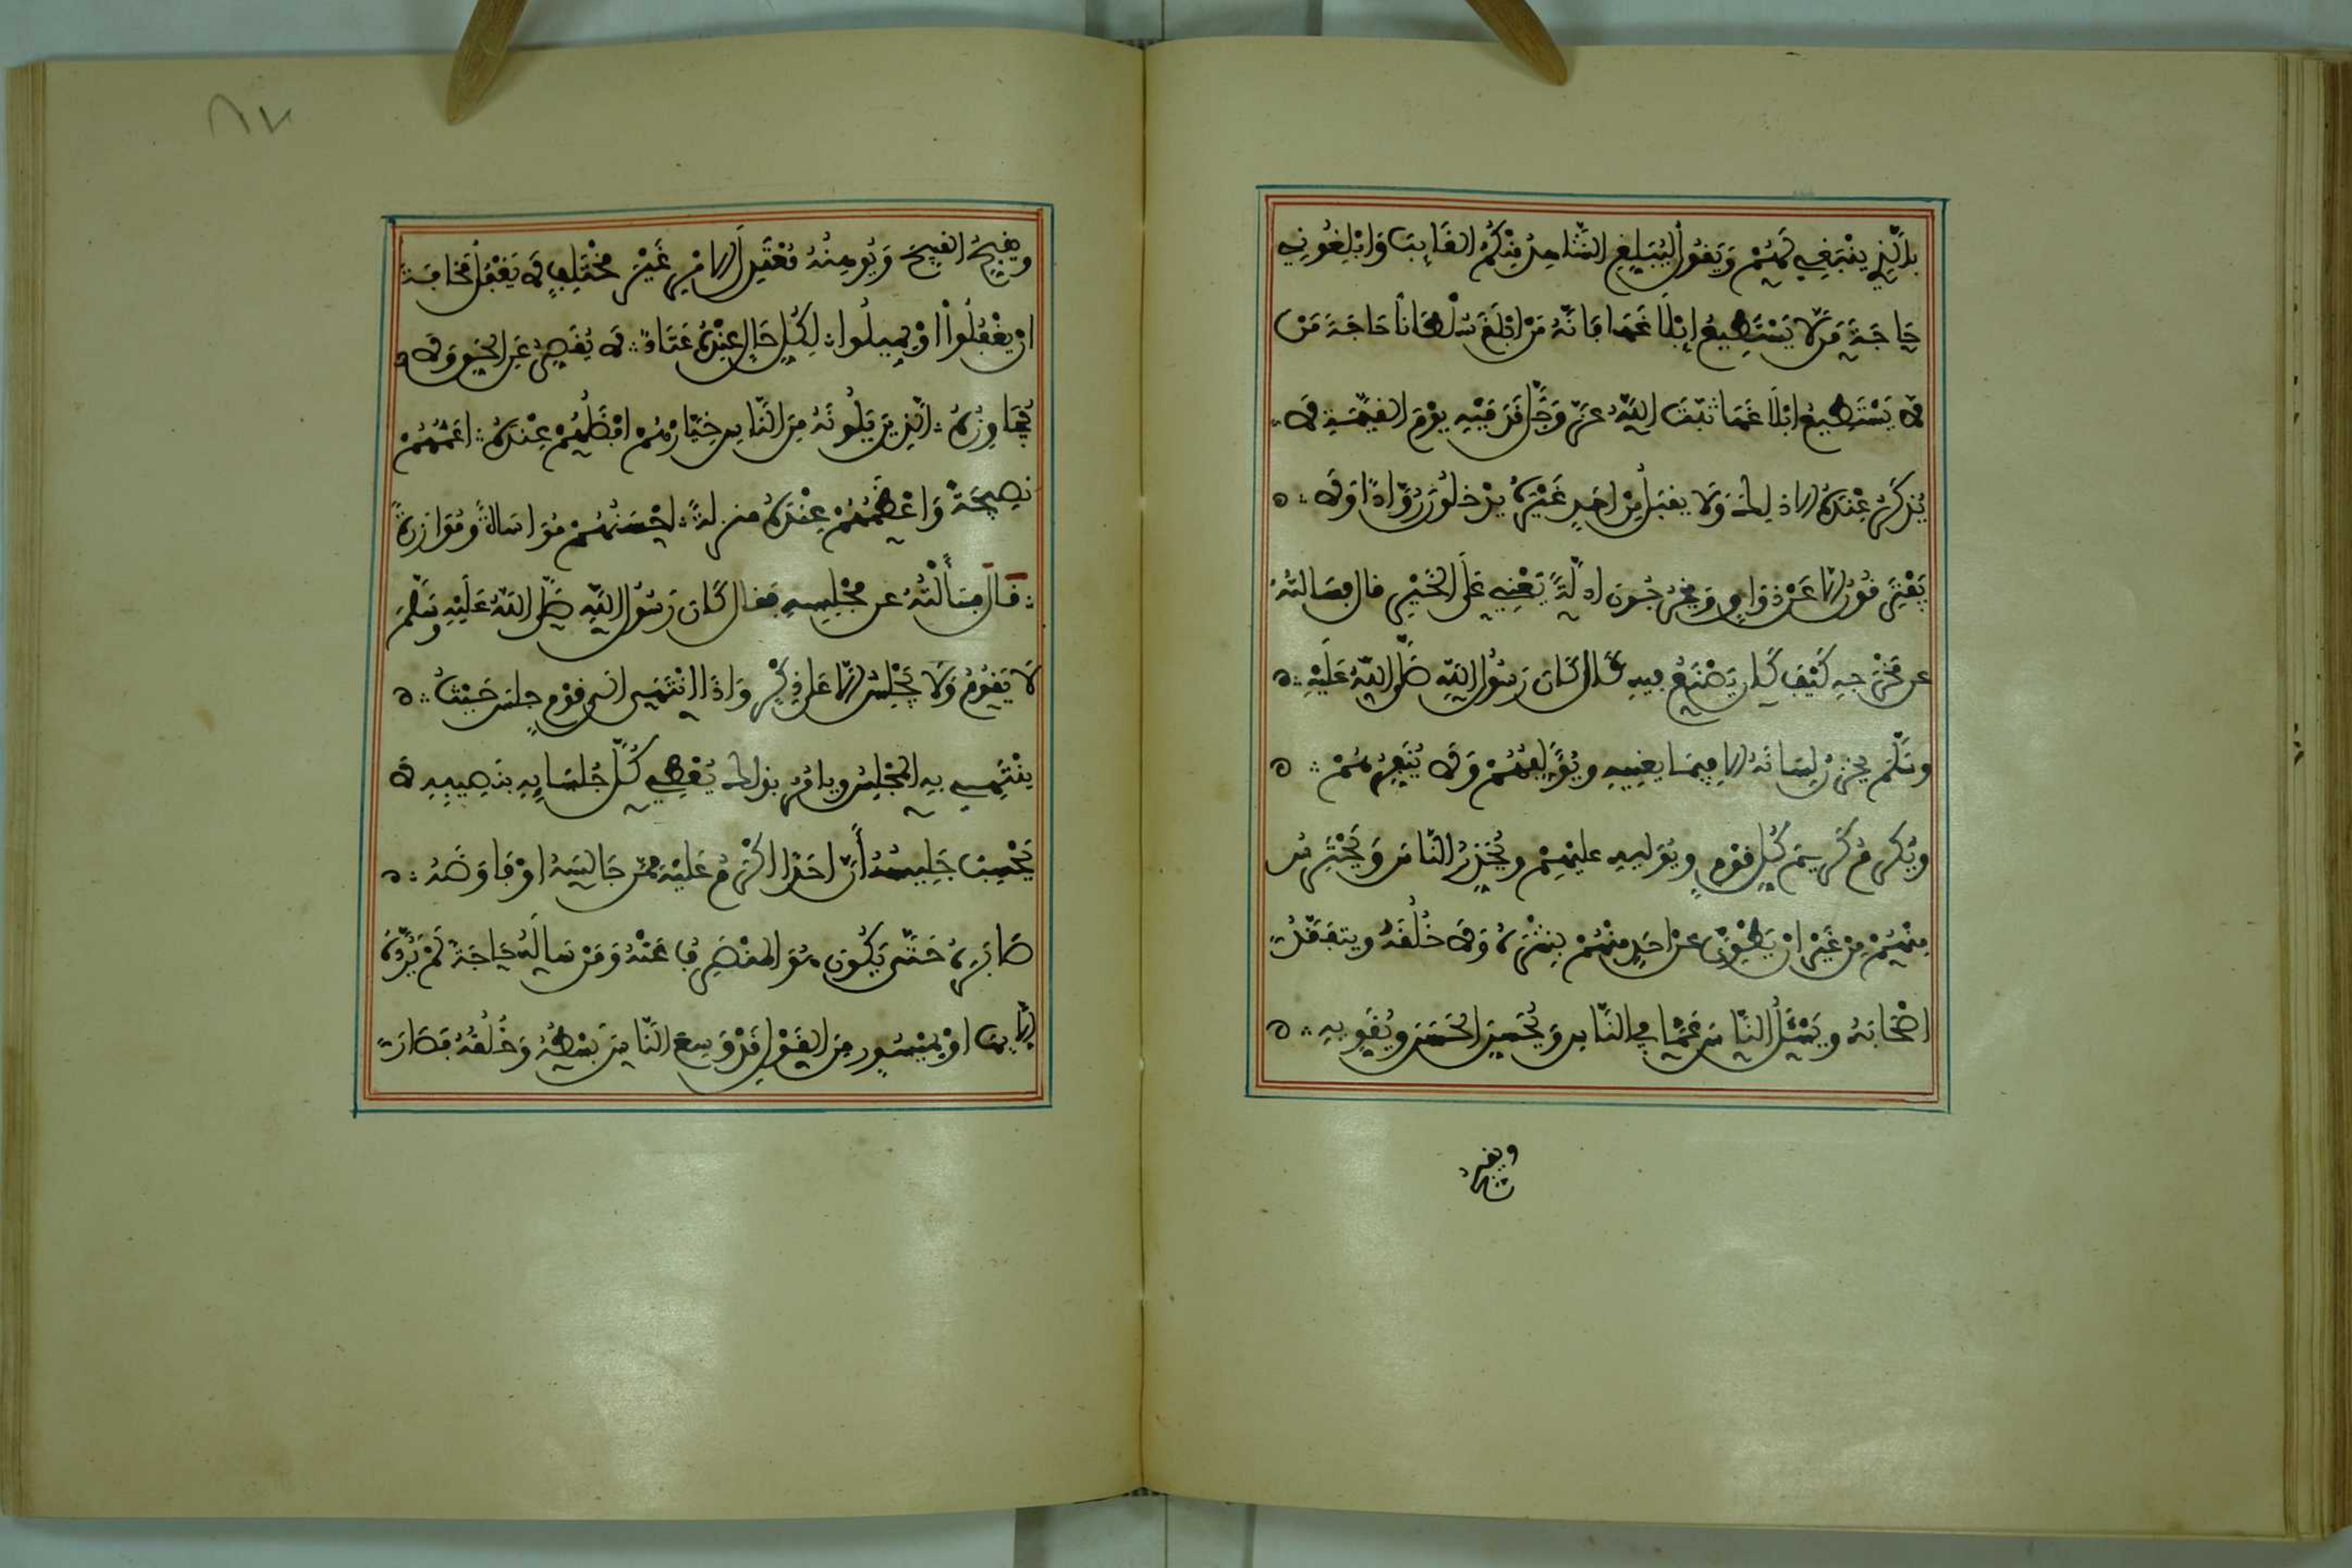 بالذي ينبغي لهم ويقول ليبلغ الشاهد منكم الغايب وابلغوني
حاجة من لا يستطيع ابلاغها فانه من ابلغ سلطانا حاجة من
لا يستطيع ابلاغها ثبت الله عز وجل قدميه يوم القيمة لا
يذكر عنده الا ذلك ولا يقبل من احد غيره يدخلون روادا ولا
يفترقون الا عن ذواق ويخرجون ادلة يعني على الخير قال فسالته
عن مخرجه كيف كان يصنع فيه قال كان رسول الله صلى الله عليه
وسلم يخزن لسانه الا فيما يعنيه ويولفهم ولا ينفرهم
ويكرم كريم كل قوم ويوليه عليهم ويحذر الناس ويحترس
منهم من غير ان يطوي عن احد منهم بشره ولا خلقه ويتفقد
اصحابه ويسئل الناس عما في الناس ويحسن الحسن ويقويه
ويقبح
ويقبح القبيح ويوهنه معتدل الامر غير مختلف لا يغفل مخافة
ان يغفلوا او يميلوا لكل حال عنده عتاد لا يقصر عن الحق ولا
يجاوزه الذين يلونه من الناس خيارهم افضلهم عنده اعمهم
نصيحة واعظمهم عنده منزلة احسنهم مواساة وموازرة
قال فسألته عن مجلسه فقال كان رسول الله صلى الله عليه وسلم
لا يقوم ولا يجلس الا على ذكر واذا انتهى الى قوم جلس حيث
ينتهي به المجلس ويامر بذلك يعطي كل جلسايه بنصيبه لا
يحسب جليسه أن احدا اكرم عليه ممن جالسه او فاوضه
صابره حتى يكون هو المنصرف عنه ومن ساله حاجة لم يرده
الا بها او بميسور من القول قد وسع الناس بسطه وخلقه فصار